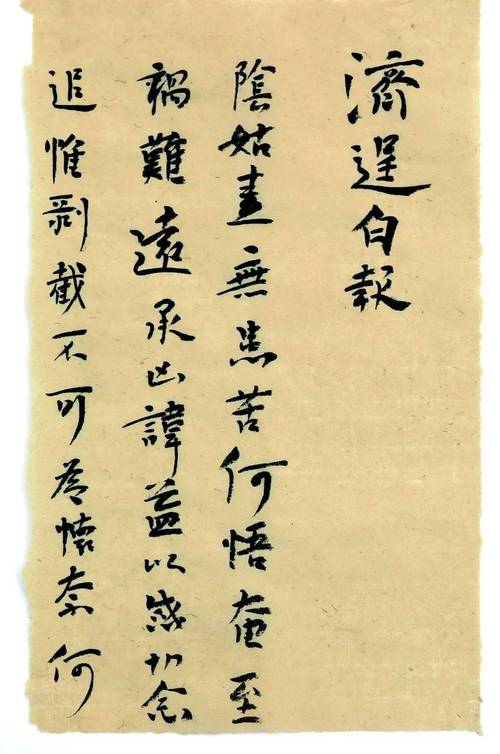 濟逞白報
陰姑素無患苦何悟奄至
禍難遠承凶諱益以感切念
追惟剝截不可為懷奈何